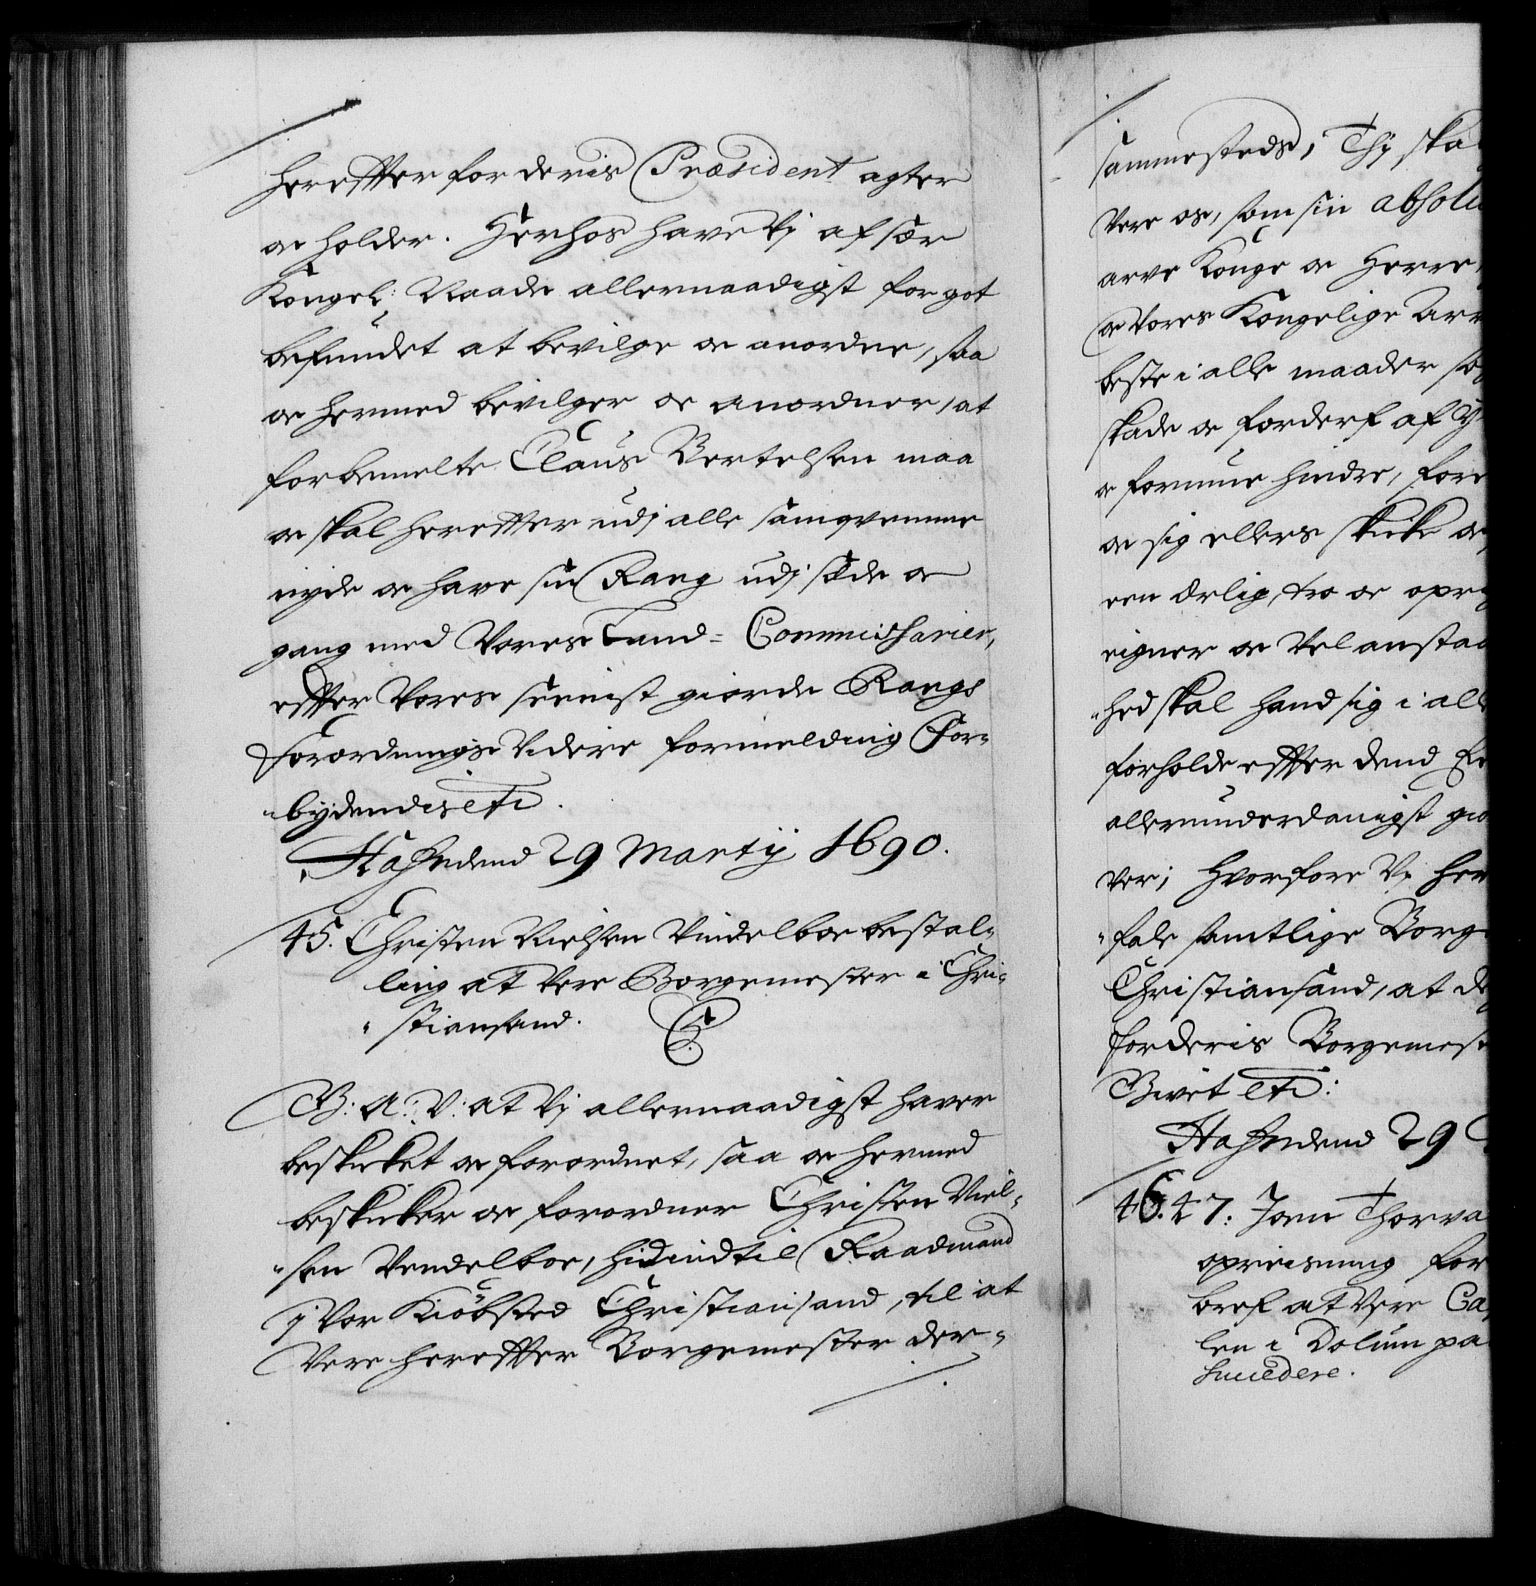 hereffter for deris Præsident agter
oc holder. Herhos have Vj af sær
Kongel: Naade allernaadigst for got
befundet at bevilge oc anordne, saa
oc hermed bevilger oc anordner, at
forbemelte Claus Bertelsen maa
oc skal hereffter udj alle samqvemme
nyde oc have sin Rang udj sæde oc
gang med Vores Land= Commissarier,
effter Vores seenist giorde Rangs
Forordnings Videre formelding For-
bydendis etc.
Hafn dend 29 Martij 1690.
45. Christen Nielsen Vindelboe bestal-
ling at Vere Borgemester i Chri-
stiansand.
G: A: V: at Vj allernaadigst haver
beskicket oc forordnet, saa oc hermed
beskicker oc forordner Christen Niel-
sen Vendelboe, hidindtil Raadmand
j Vor Kiöbsted Christiansand, til at
Vere hereffter Borgemester der-
sammesteds; Thj ska
Vere os, som sin absolu
arve Konge oc Herre,
oc Vores Kongelige Arv
beste i alle maader sø
skade oc forderf af
oc formue hindre, fore
oc sig ellers skicke oc
een ærlig, tro oc opr
eigner oc Vel anstaa
hed skal hand sig i all
forholde effter dend E
allerunderdanigst gio
ver; Hvorfore Vj her
fale samtlige Borge
Christiansand, at de
for deris Borgemest
Givet etc:
Hafn dend 29
46. 47: Jørn Thorva
opreisning for
bref at Vere Ca
len i Dolum pa
Succedere.